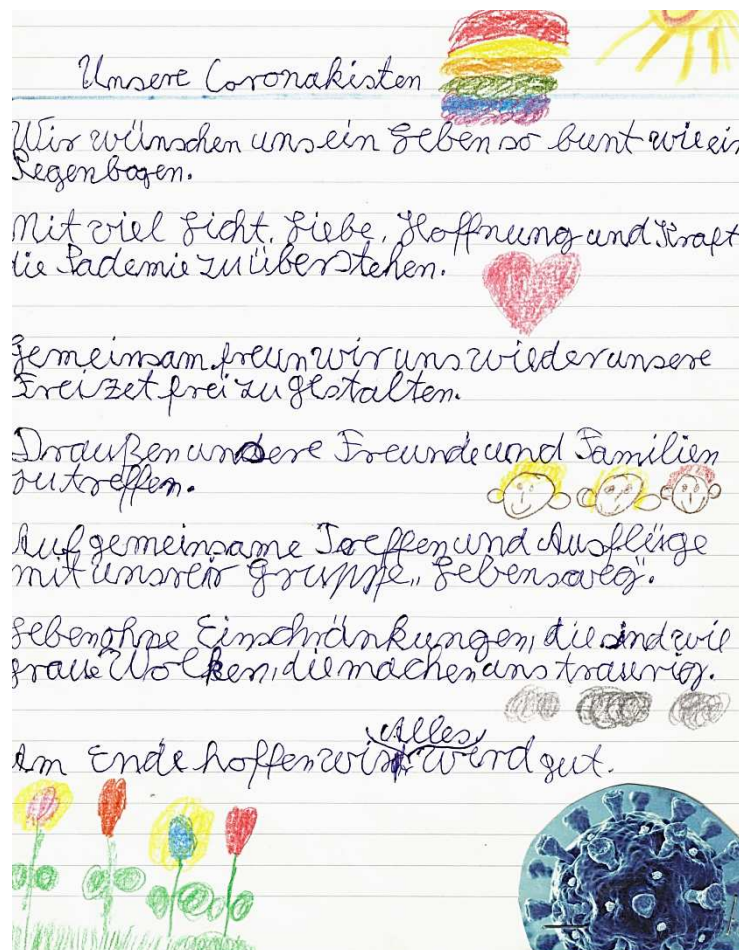 Unsere Coronakisten
Wir wünschen uns ein Leben so bunt wie ein
Regenbogen.
Mit viel Licht, Liebe, Hoffnung und Kraft
die Pademie zu überstehen.
Gemeinsam freun wir uns wieder unsere
Freizet frei zu gestalten.
Draußen unsere Freunde und Familien
zu treffen.
Auf gemeinsame Treffen und Ausflüge
mit unsrer Gruppe „Lebensweg".
Leben ohne Einschränkungen, die sind wie
graue Wolken, die machen uns traurig.
Alles
Am Ende hoffen wir wird gut.